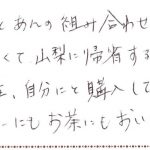 とあんの組み合わせ
くて山梨に帰省する
、自分にと購入して
ーにもお茶にもおい